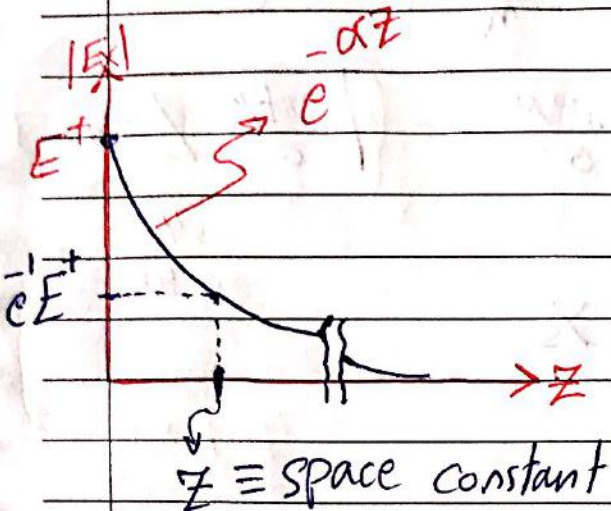 |Ex|
e^-αz
E^+
e^-1 E^+
z
z ≡ space constant